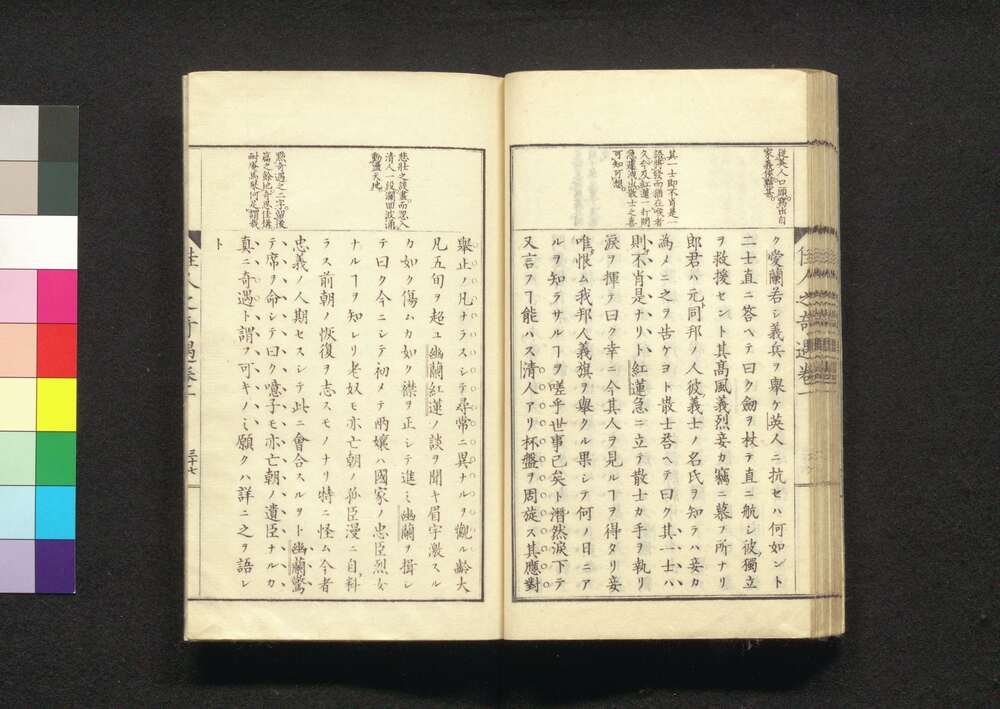 從美人口頭寫出自
其一士即不肖是一
久矣及紅蓮一打問
可知可想
ク愛蘭若シ義兵ヲ擧ケ英人ニ抗セハ何如ント
二士直ニ答ヘテ曰ク劔ヲ杖テ直ニ航シ彼獨立
ヲ救援セントス其高風義烈妾カ竊ニ慕フ所ナリ
郎君ハ元ト同邦ノ人彼義士ノ名氏ヲ知ラハ妾カ
為メニ之ヲ告ケヨト散士荅ヘテ曰ク其一士ハ
則不肖是ナリト紅蓮急ニ立テ散士カ手ヲ執リ
淚ヲ揮テ曰ク幸ニ今其人ヲ見ルヿヲ得タリ妾
唯恨ム我邦人義旗ヲ擧クル果シテ何ノ日ニア
ルヲ知ラサルヿヲ嗟乎世事已矣ト潸然淚下テ
又言フヿ能ハス清人アリ杯盤ヲ周旋ス其應對
佳人之奇遇卷二
悲壯之後
清人一段瀾回波涌
動盪天地
點奇遇之二字留後
擧止ノ凡ナラスシテ尋常ニ異ナルヲ觀ル齡大
凡五旬ヲ超ユ幽蘭紅蓮ノ談ヲ聞キ眉宇激スル
カ如ク傷ムカ如ク襟ヲ正シテ進ミ幽蘭ヲ揖シ
テ曰ク今ニシテ初メテ兩孃ハ國家ノ忠臣烈女
ナルヿヲ知レリ老奴モ亦亡朝ノ孤臣漫ニ自料
ラス前朝ノ恢復ヲ志スモノナリ特ニ怪ム今者
忠義ノ人期セスシテ此ニ會合スルヲト幽蘭驚
テ席ヲ命シテ曰ク噫子モ亦亡朝ノ遺臣ナルカ
真ニ奇遇ト謂フ可キノミ願クハ詳ニ之ヲ語レ
ト
三十七